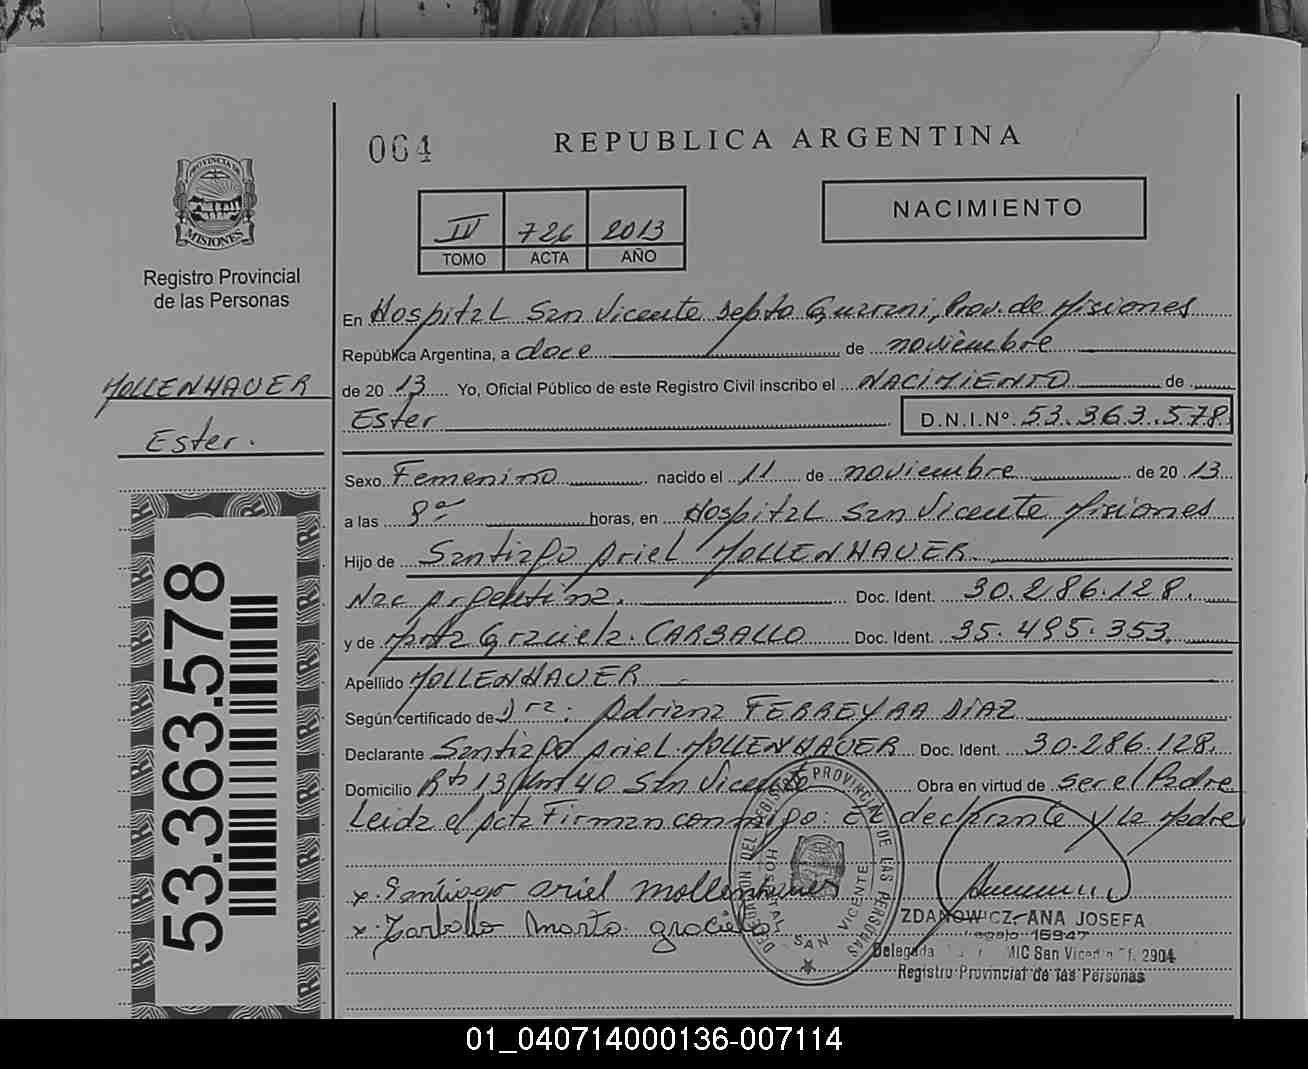 064
REPUBLICA ARGENTINA
PROVINCIA DE
MISIONES
Registro Provincial
de las Personas
IV 726 2013
TOMO ACTA AÑO
NACIMIENTO
En Hospital San Vicente Depto Guarani, Prov. de Misiones
República Argentina, a doce de noviembre
MOLLENHAUER
de 20 13 Yo, Oficial Público de este Registro Civil inscribo el NACIMIENTO de
Ester D.N.I.Nº 53.363.578
Ester.
Sexo Femenino nacido el 11 de noviembre de 20 13
a las horas, en Hospital San Vicente Misiones
Hijo de Santiago Ariel MOLLENHAUER
Nac Argentina. Doc. Ident. 30.286.128.
y de Marta Graciela. CARBALLO Doc. Ident. 35.495.353.
Apellido MOLLENHAUER
Según certificado de Dra: Adriana FERREYRA DIAZ
Declarante Santiago Ariel MOLLENHAUER Doc. Ident. 30.286.128.
Domicilio Rta 13 Km 40 San Vicente Obra en virtud de ser el Padre
Leida el Acta Firman conmigo: El declarante y la Madre
x. Santiago ariel mollenhauer
x. Carballo Marta graciela
53.363.578
DELEGACION DEL REGISTRO PROVINCIAL DE LAS PERSONAS
HOSPITAL SAN VICENTE
ZDANOWICZ ANA JOSEFA
Legajo 16947
Delegada MIC San Vicente Of. 2904
Registro Provincial de las Personas
01_040714000136-007114